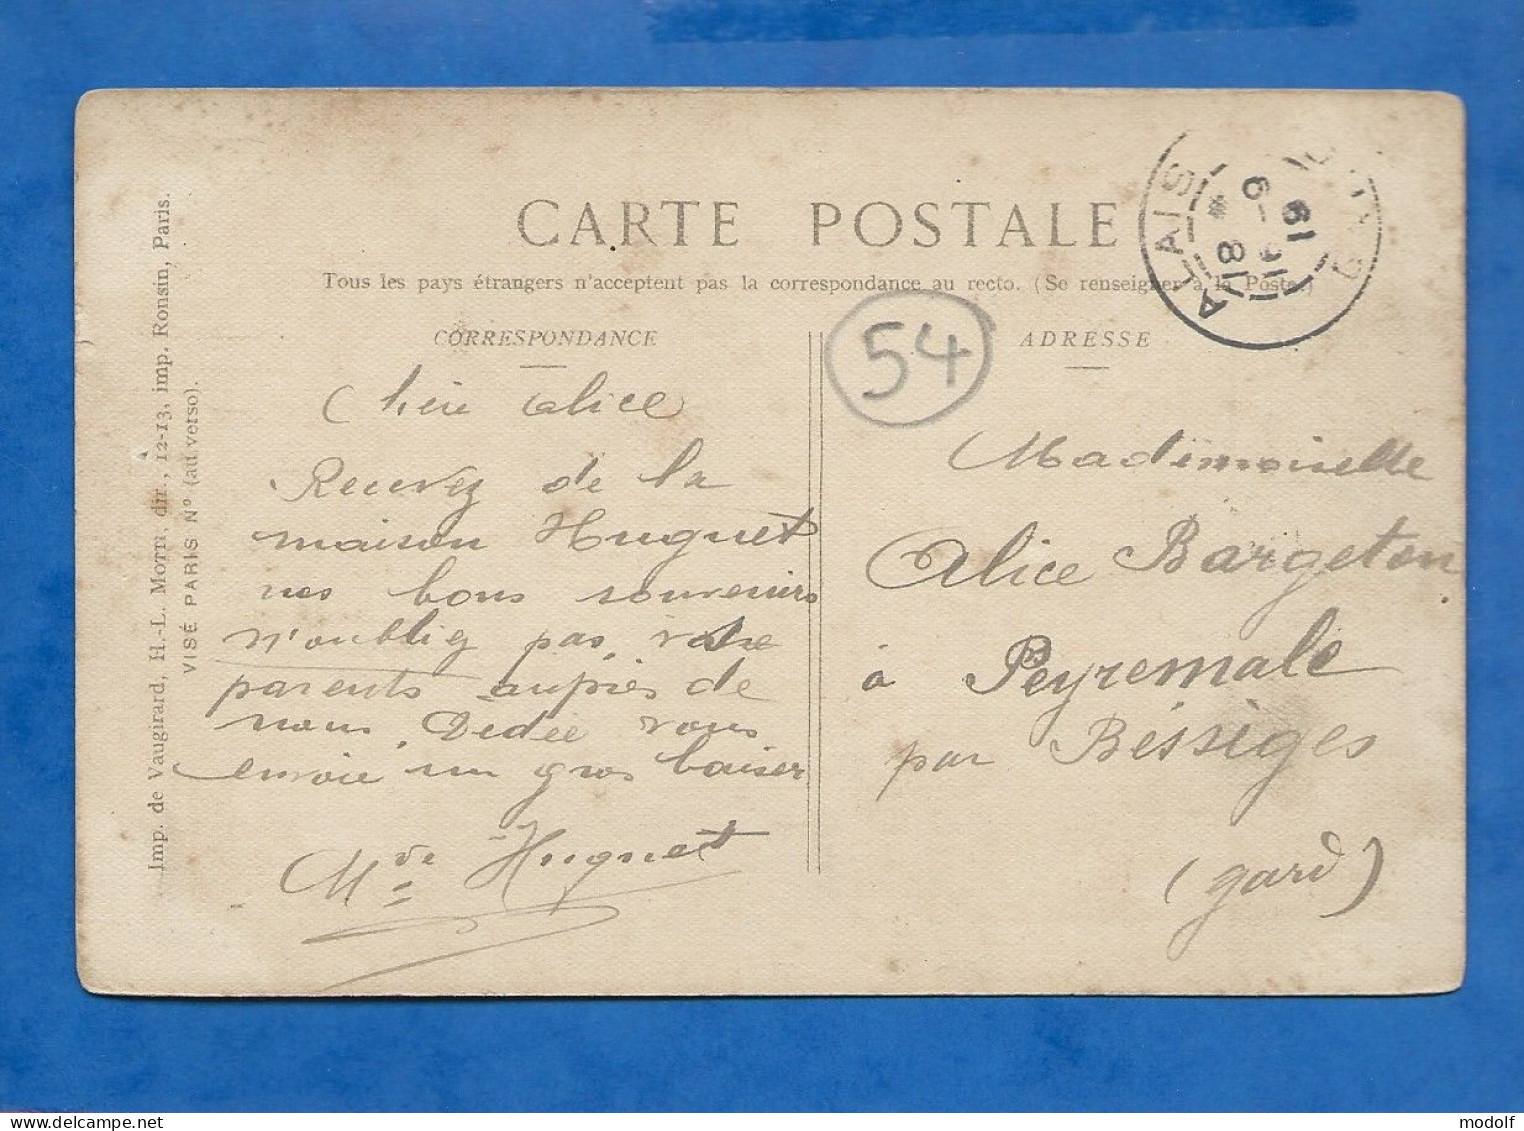 CARTE POSTALE
Tous les pays étrangers n'acceptent pas la correspondance au recto. (Se renseigner à la Poste.)
CORRESPONDANCE
Chère Alice
Recevez de la
maison Huguet
nos bons souvenirs
n'oubliez pas votre
parents auprès de
nous. Dédée vous
envoie un gros baiser
Mde Huguet
54
ADRESSE
Mademoiselle
Alice Bargeton
à Peyremale
par Bessèges
(gard)
ALAIS
GARD
18
6-9
19
Imp. de Vaugirard, H.-L. Motti, dir., 12-13, imp. Ronsin, Paris.
VISÉ PARIS N° (au verso).
modolf